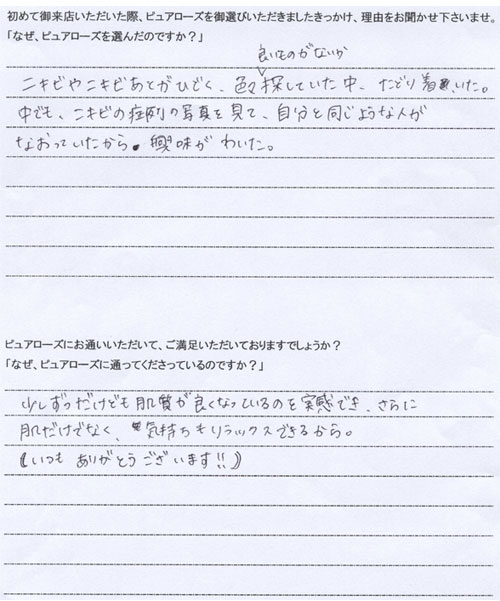 初めて御来店いただいた際、ピュアローズを御選びいただきましたきっかけ、理由をお聞かせ下さいませ。
「なぜ、ピュアローズを選んだのですか？」
良いものがないか
ニキビやニキビあとがひどく、色々探していた中、たどり着いた。
中でも、ニキビの症例の写真を見て、自分と同じような人が
なおっていたから、興味がわいた。
ピュアローズにお通いいただいて、ご満足いただいておりますでしょうか？
「なぜ、ピュアローズに通ってくださっているのですか？」
少しずつだけども肌質が良くなっているのを実感でき、さらに
肌だけでなく、気持ちもリラックスできるから。
(いつも ありがとうございます!!)